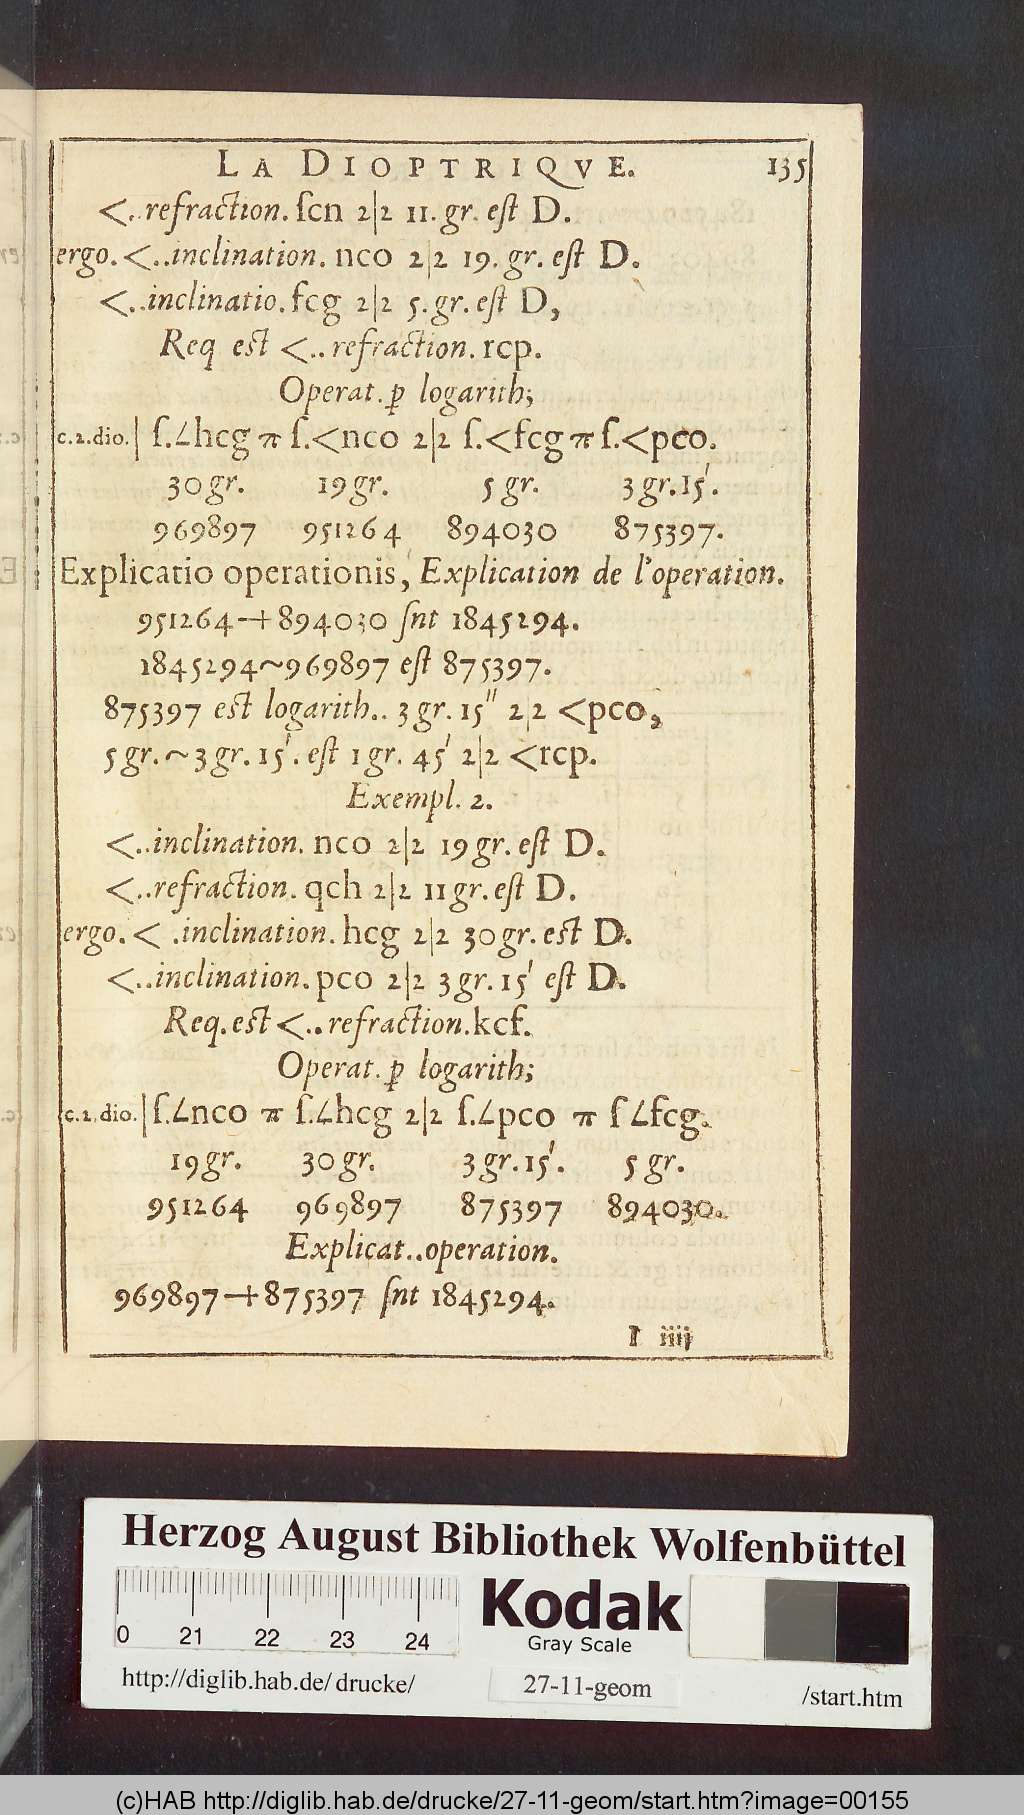 LA DIOPTRIQVE. 135
<..refraction. ſcn 2|2 11. gr. eſt D.
ergo. <..inclination. nco 2|2 19. gr. eſt D.
<..inclinatio. fcg 2|2 5. gr. eſt D,
Req est <..refraction. rcp.
Operat. ꝑ logarith;
c.2.dio.| ſ.∠hcg π ſ.<nco 2|2 ſ.<fcg π ſ.<pco.
30 gr. 19 gr. 5 gr. 3 gr. 15'.
969897 951264 894030 875397.
Explicatio operationis, Explication de l'operation.
951264+894030 ſnt 1845294.
1845294~969897 eſt 875397.
875397 est logarith.. 3 gr. 15" 2|2 <pco,
5 gr. ~ 3 gr. 15'. eſt 1 gr. 45' 2|2 <rcp.
Exempl. 2.
<..inclination. nco 2|2 19 gr. eſt D.
<..refraction. qch 2|2 11 gr. eſt D.
ergo. < .inclination. hcg 2|2 30 gr. est D.
<..inclination. pco 2|2 3 gr. 15' eſt D.
Req. est <..refraction. kcf.
Operat. ꝑ logarith;
c.2.dio.| ſ.∠nco π ſ.∠hcg 2|2 ſ.∠pco π ſ ∠fcg.
19 gr. 30 gr. 3 gr. 15'. 5 gr.
951264 969897 875397 894030.
Explicat..operation.
969897+875397 ſnt 1845294.
I iiij
Herzog August Bibliothek Wolfenbüttel
0 21 22 23 24
Kodak
Gray Scale
http://diglib.hab.de/drucke/ 27-11-geom /start.htm
(c)HAB http://diglib.hab.de/drucke/27-11-geom/start.htm?image=00155